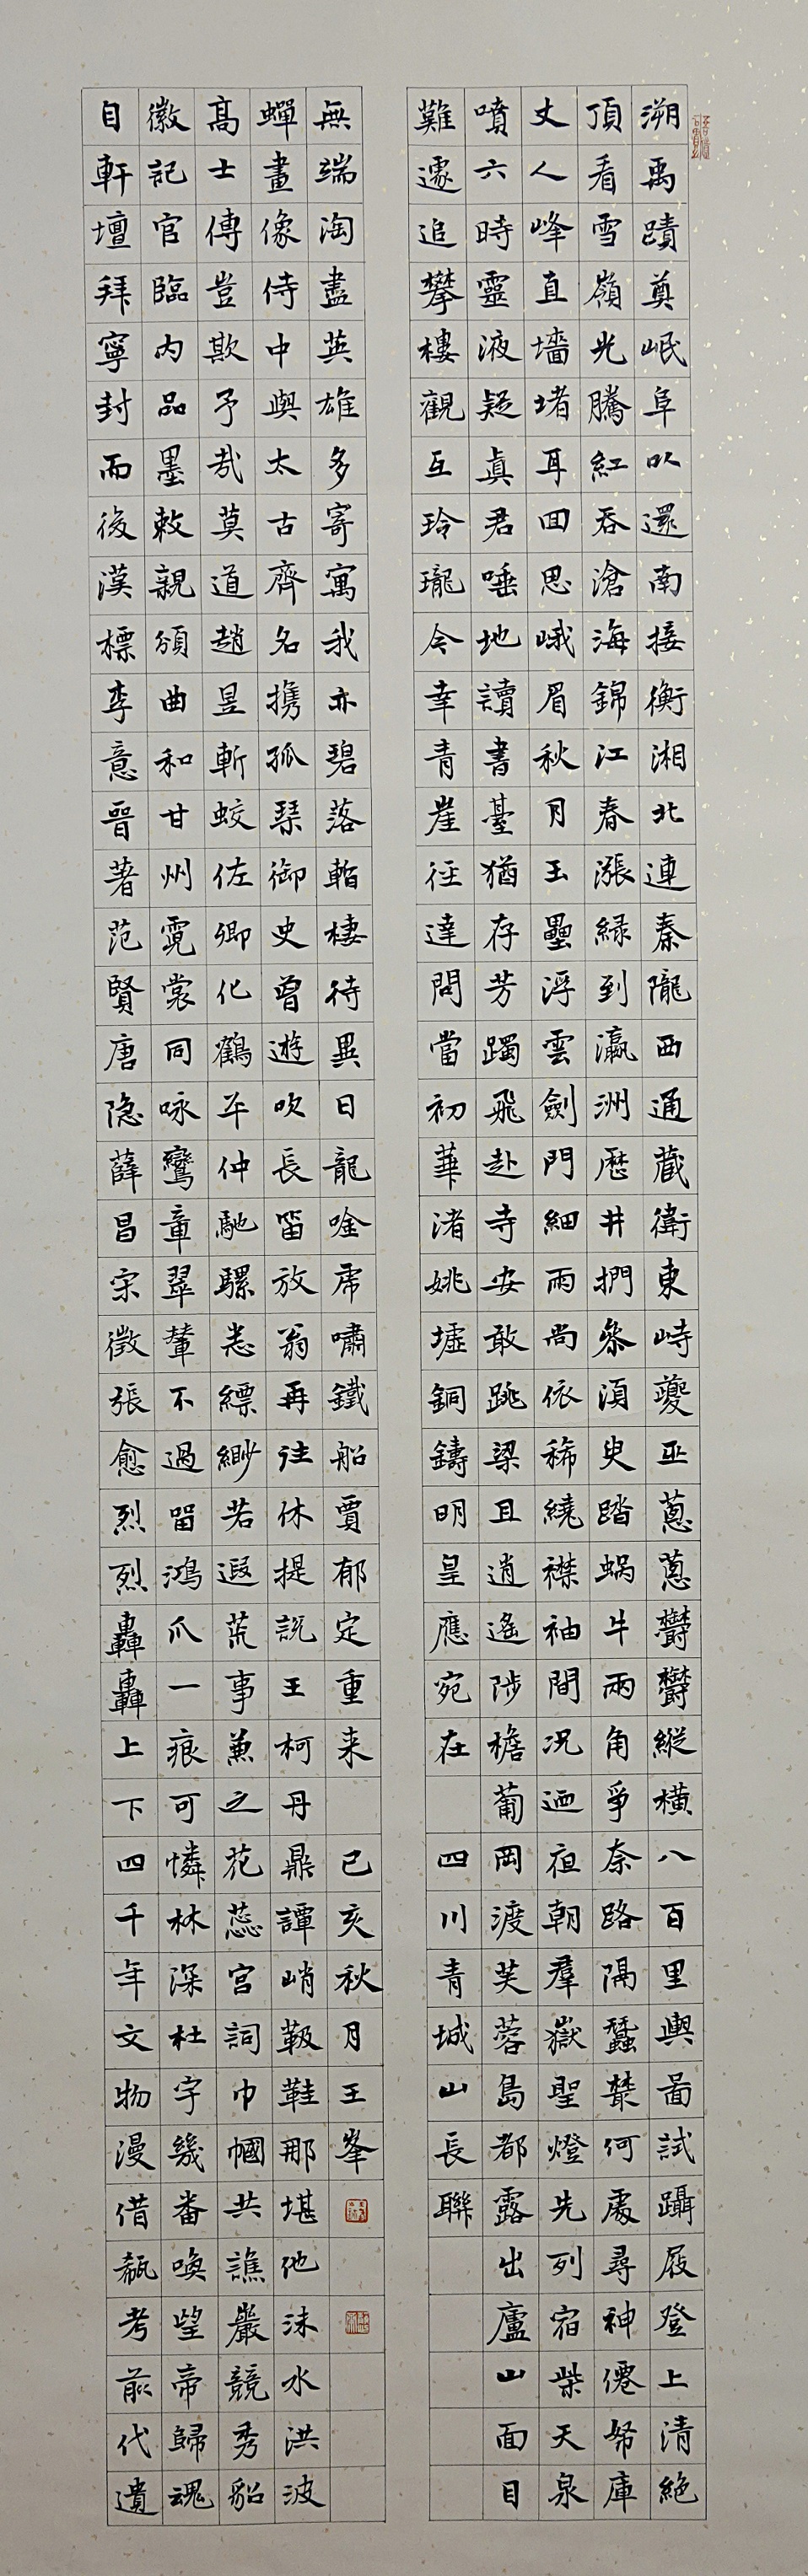 溯禹蹟奠岷阜以還南接衡湘北連秦隴西通藏衛東峙夔巫蔥蔥鬱鬱縱橫八百里輿啚試躡屐登上清絕
頂看雪嶺光騰紅吞滄海錦江春漲緑到瀛洲歷井捫叅須臾踏蝸牛兩角爭奈路隔蠶叢何處尋神僊帑庫
丈人峰直墻堵耳回思峨眉秋月玉壘浮雲劍門細雨尚依稀繞襟袖間況迺夜朝羣嶽聖燈先列宿柴天泉
噴六時靈液疑真君唾地讀書臺猶存芳躅飛赴寺安敢跳梁且逍遙陟檐葡岡渡芙蓉島都露出廬山面目
難遽追攀樓觀互玲瓏今幸青崖徑達問當初華渚姚墟銅鑄明皇應宛在 四川青城山長聯
自軒壇拜寧封而後漢標李意晉著范賢唐隐薛昌宋徵張愈烈烈轟轟上下四千年文物漫借瓻考前代遺
徽記官臨內品墨敕親頒曲和甘州霓裳同咏鸞章翠輦不過留鴻爪一痕可憐林深杜宇幾番喚望帝歸魂
高士傳豈欺予哉莫道趙昱斬蛟佐卿化鶴平仲馳騾恙縹緲若遐荒事兼之花蕊宮詞巾幗共譙巖競秀貂
蟬畫像侍中與太古齊名攜孤琴御史曾遊吹長笛放翁再往休提説王柯丹鼎譚峭靸鞋那堪他沫水洪波
無端淘盡英雄多寄寓我亦碧落暫棲待異日龍唫虎嘯鐵船賈郁定重来 己亥秋月王峯